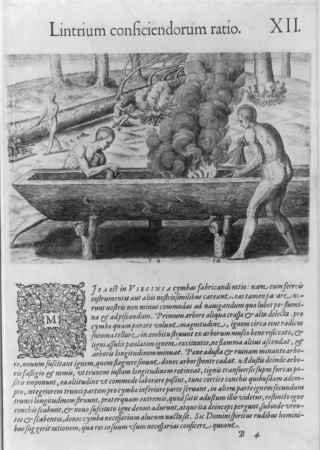 Lintrium conficiendorum ratio. XII.
T·B
MIra est in VIRGINIA cymbas fabricandi ratio: nam cum ferreis
instrumentis aut aliis nostris similibus careant, eas tamen parare no-
runt nostris non minus commodas ad navigandum quo lubet per flumi-
na & ad piscandum. Primum arbore aliqua crassa & alta delecta, pro
cymbæ quam parare volunt magnitudine, ignem circa eius radices
summa tellure, in ambitu struunt ex arborum musco bene resiccato, &
ligni assulis paulatim ignem excitantes, ne flamma altius ascendat, &
arboris longitudinem minuat. Pæne adusta & ruinam minante arbo-
re, novum suscitant ignem, quem flagrare sinunt, donec arbor sponte cadat. Adustis deinde arbo-
ris fastigio & ramis, ut truncus iustam longitudinem retineat, tignis transversis supra furcas po-
sitis imponunt, ea altitudine ut commode laborare possint, tunc cortice conchis quibusdam adem-
pto, integriorem trunci partem pro cymbæ inferiore parte servant, in altera parte ignem secundum
trunci longitudinem struunt, præterquam extremis, quod satis adustum illis videtur, restincto igne
conchis scabunt, & novo suscitato igne denuo adurunt, atque ita deinceps pergunt, subinde uren-
tes & scabentes, donec cymba necessarium alveum nacta sit. Sic Domini spiritus rudibus homini-
bus suggerit rationem, qua res in suum usum necessarias conficere queant.
B 4